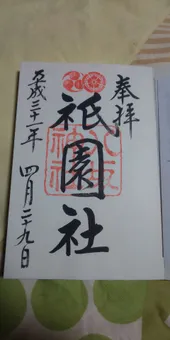 奉拝
祇園社
八坂
神社
平成三十一年 四月二十九日